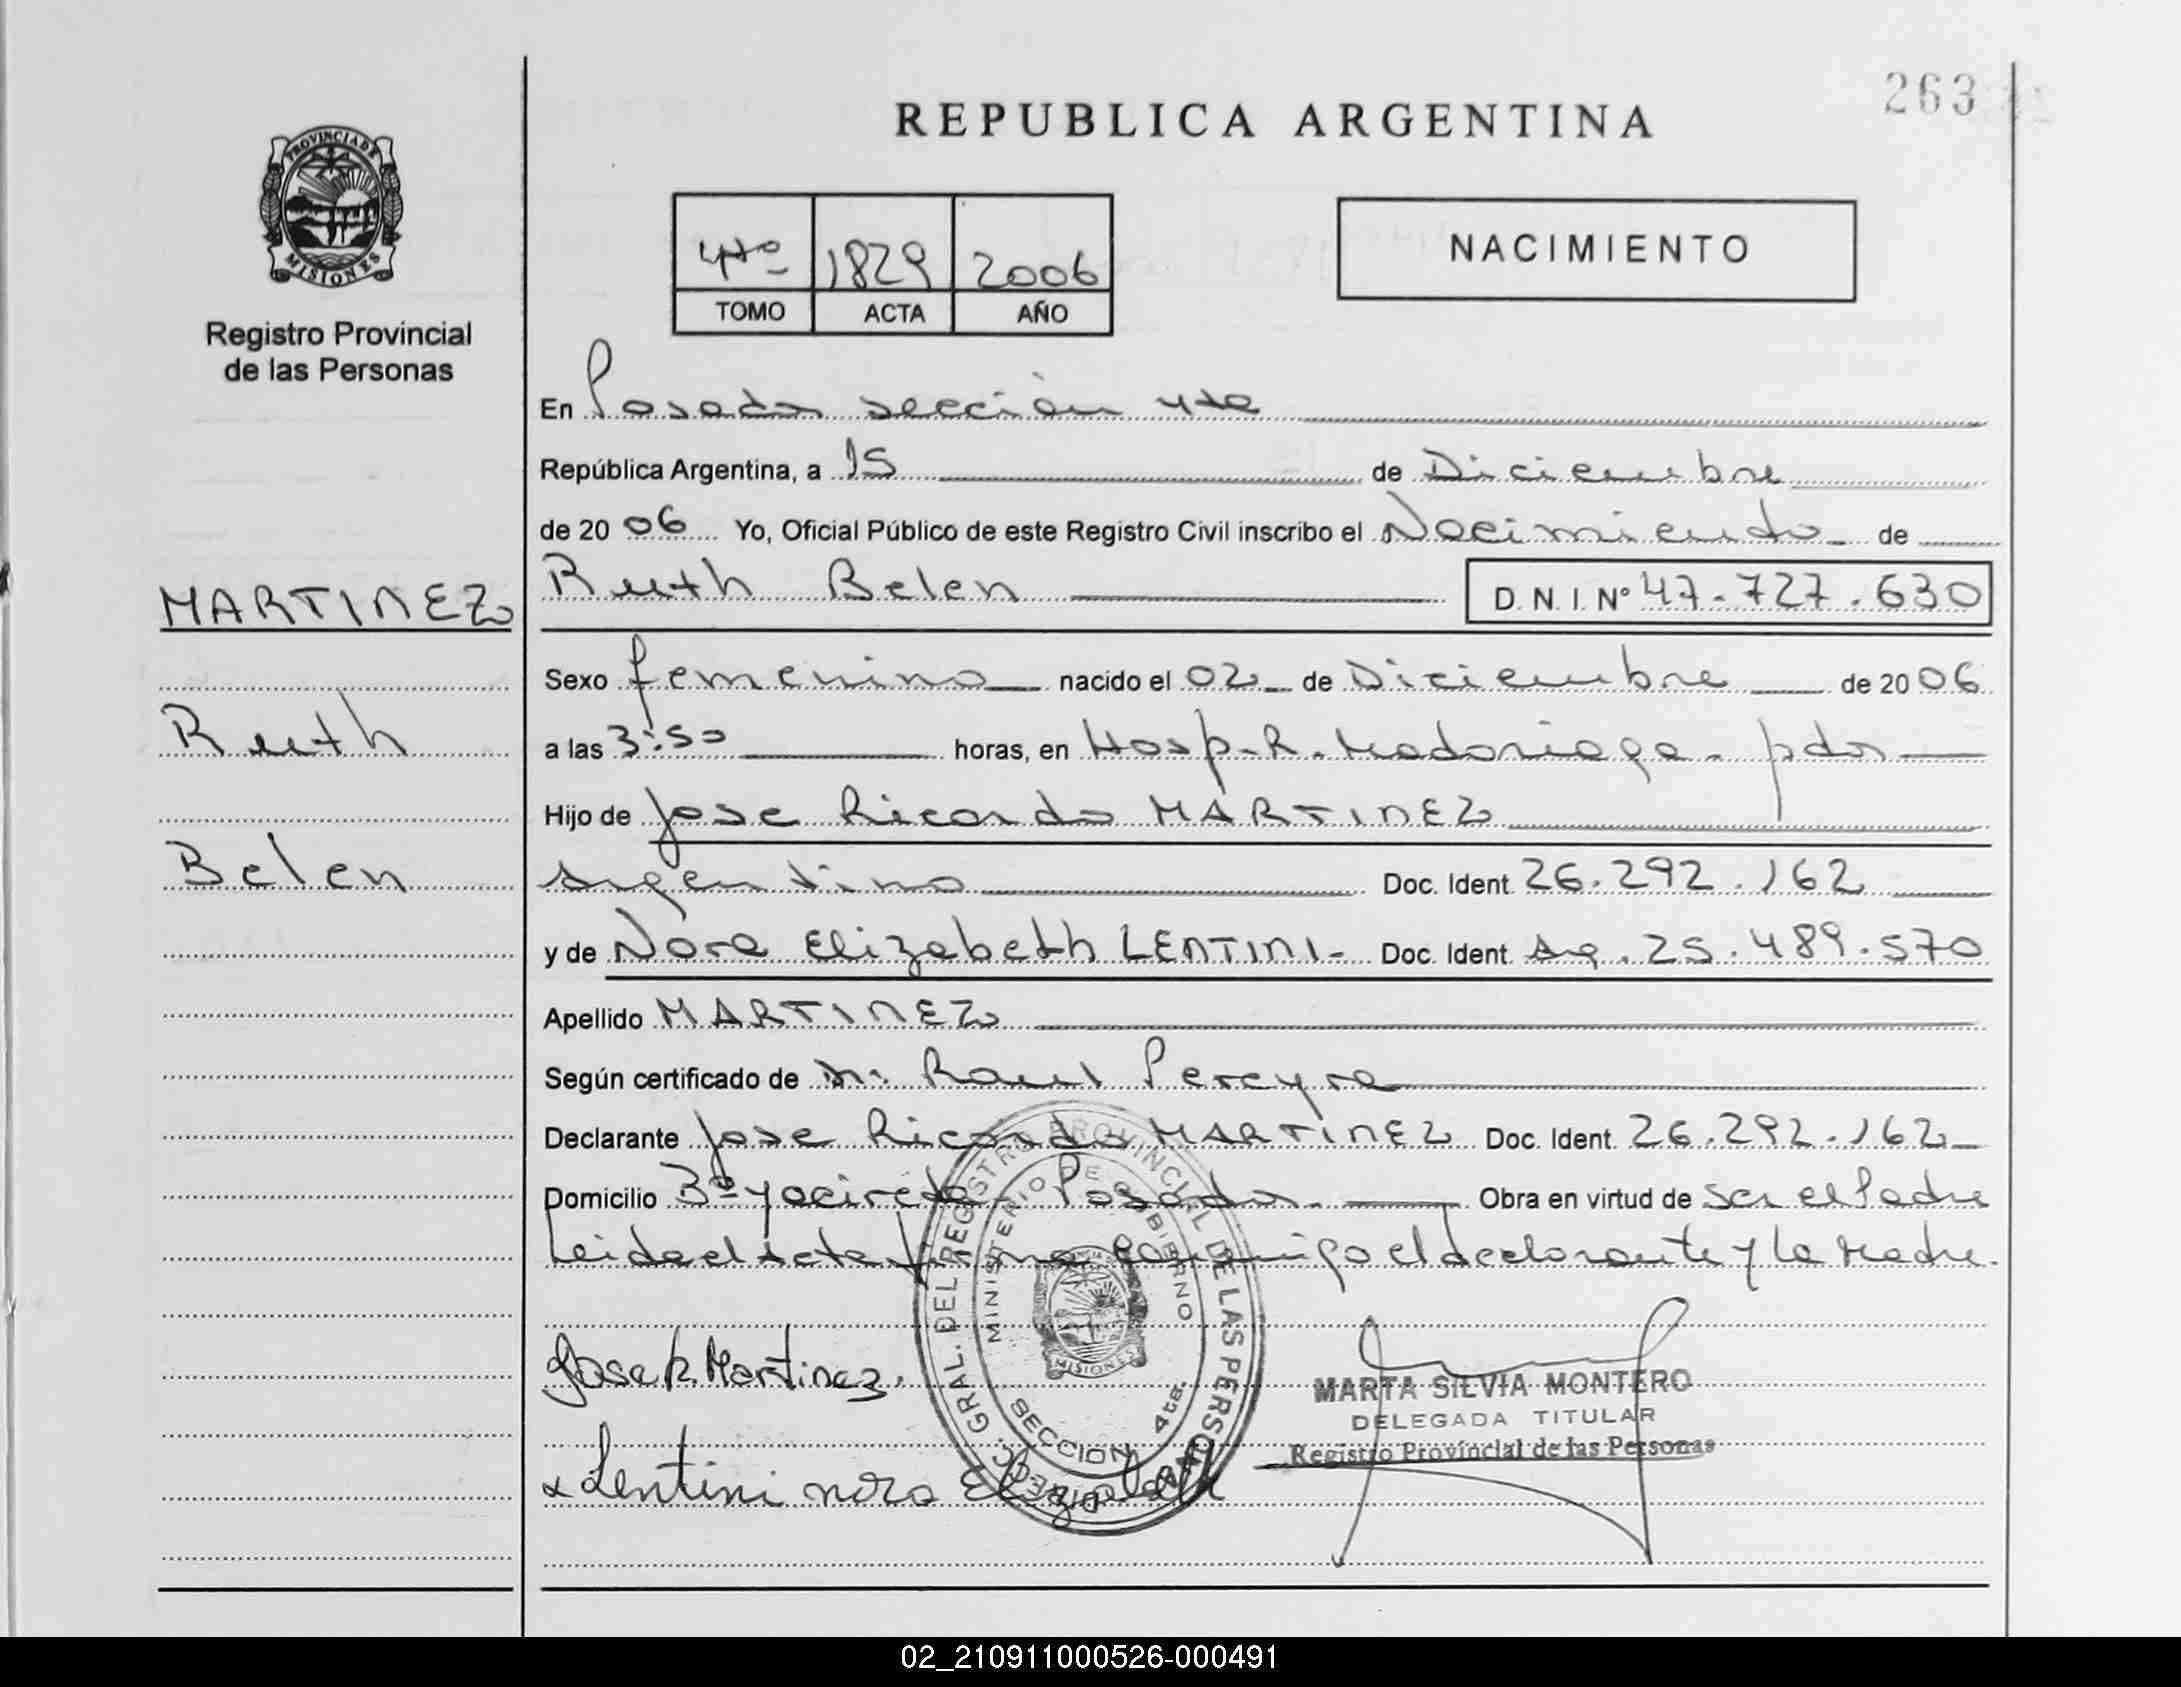 263
REPUBLICA ARGENTINA
PROVINCIA DE
MISIONES
Registro Provincial
de las Personas
4to 1829 2006
TOMO ACTA AÑO
NACIMIENTO
En Posadas sección 4ta
República Argentina, a 15 de Diciembre
de 20 06 Yo, Oficial Público de este Registro Civil inscribo el Nacimiento de
MARTINEZ
Ruth Belen D. N. I. Nº 47.727.630
Sexo femenino nacido el 02 de Diciembre de 20 06
Ruth
a las 3:50 horas, en Hosp. R. Madariaga - pdas
Hijo de Jose Ricardo MARTINEZ
Belen
Argentino Doc. Ident. 26.292.162
y de Nora Elizabeth LENTINI - Doc. Ident. Arg. 25.489.570
Apellido MARTINEZ
Según certificado de Dr. Raul Pereyra
Declarante Jose Ricardo MARTINEZ Doc. Ident. 26.292.162
Domicilio Bº Yacireta - Posadas. Obra en virtud de ser el Padre
Leida el Acta firma conmigo el declarante y la Madre.
DIRECC. GRAL. DEL REGISTRO PROVINCIAL DE LAS PERSONAS
MINISTERIO DE GOBIERNO
MISIONES
SECCION 4ta.
Jose R. Martinez.
MARTA SILVIA MONTERO
DELEGADA TITULAR
Registro Provincial de las Personas
x Lentini nora Elizabeth
02_210911000526-000491